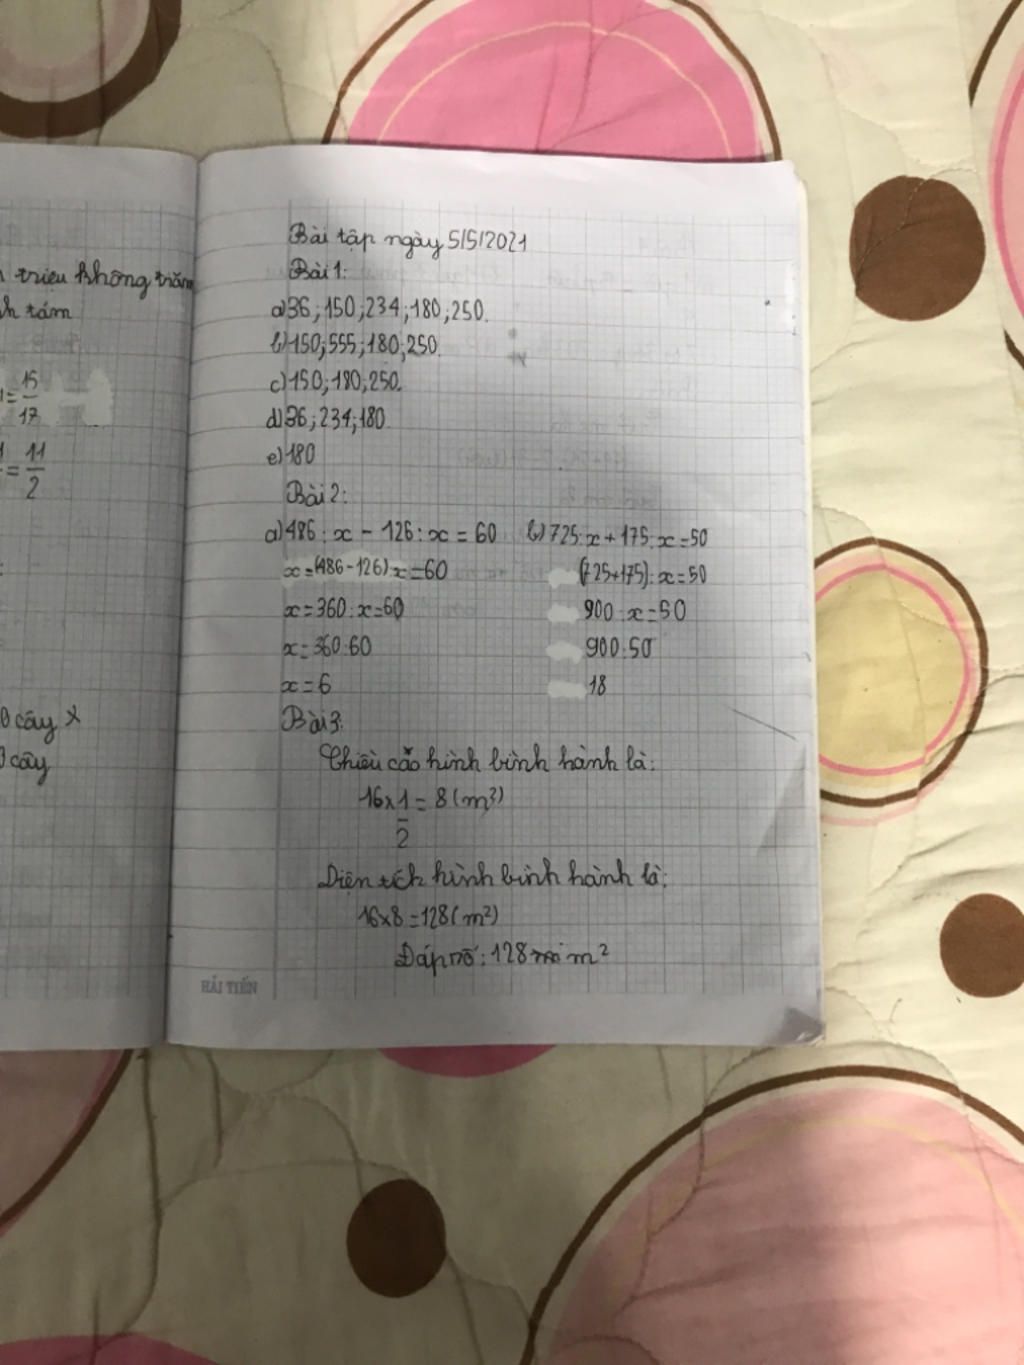 triệu không trăm
tám
= 15/17
= 11/2
cây x
cây
Bài tập ngày 5/5/2021
Bài 1:
a) 36; 150; 234; 180; 250.
b) 150; 555; 180; 250.
c) 150; 180; 250.
d) 36; 234; 180
e) 180
Bài 2:
a) 486 : x - 126 : x = 60 b) 725 : x + 175 : x = 50
x = (486 - 126) x = 60 (725 + 175) : x = 50
x = 360 : x = 60 900 : x = 50
x = 360 : 60 900 : 50
x = 6 18
Bài 3:
Chiều cao hình bình hành là:
16 x 1/2 = 8 (m²)
Diện tích hình bình hành là:
16 x 8 = 128 (m²)
Đáp số: 128 m²
HẢI TIẾN